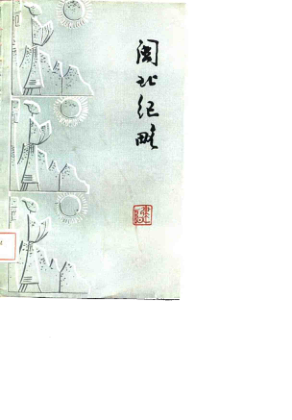 闽北纪略